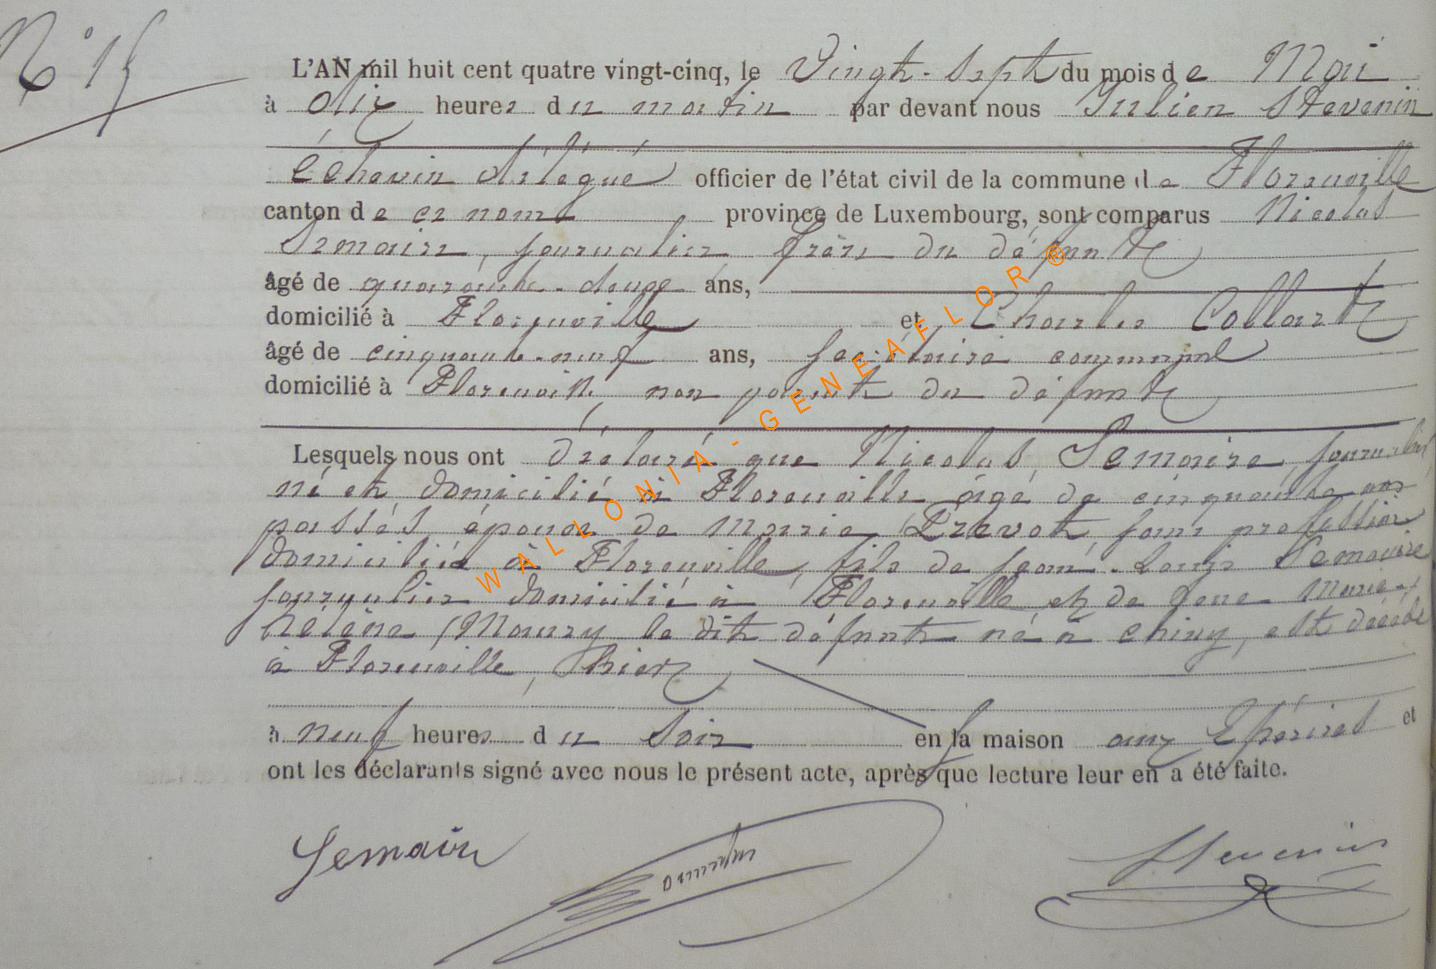 N° 15
L'AN mil huit cent quatre vingt-cinq, le Vingt-Sept du mois de Mai
à dix heures du matin par devant nous Julien Stevenin
Échevin délégué officier de l'état civil de la commune de Florenville
canton de ce nom province de Luxembourg, sont comparus Nicolas
Lemaire, journalier frère du défunt
âgé de quarante-douze ans,
domicilié à Florenville et Charles Collart
âgé de cinquante-neuf ans, secrétaire communal
domicilié à Florenville, non parent du défunt
Lesquels nous ont déclaré que Nicolas Lemaire, journalier
né et domicilié à Florenville âgé de cinquante ans
passés époux de Marie Prévot sans profession
domiciliée à Florenville, fils de Louis Lemaire
journalier domicilié à Florenville et de feue Marie
hélène Maury le dit défunt né à Chiny, est décédé
à Florenville, hier
à neuf heures du Soir en sa maison aux et
ont les déclarants signé avec nous le présent acte, après que lecture leur en a été faite.
Lemaire
Stevenin
WALLONIA - GENEAFLOR ®